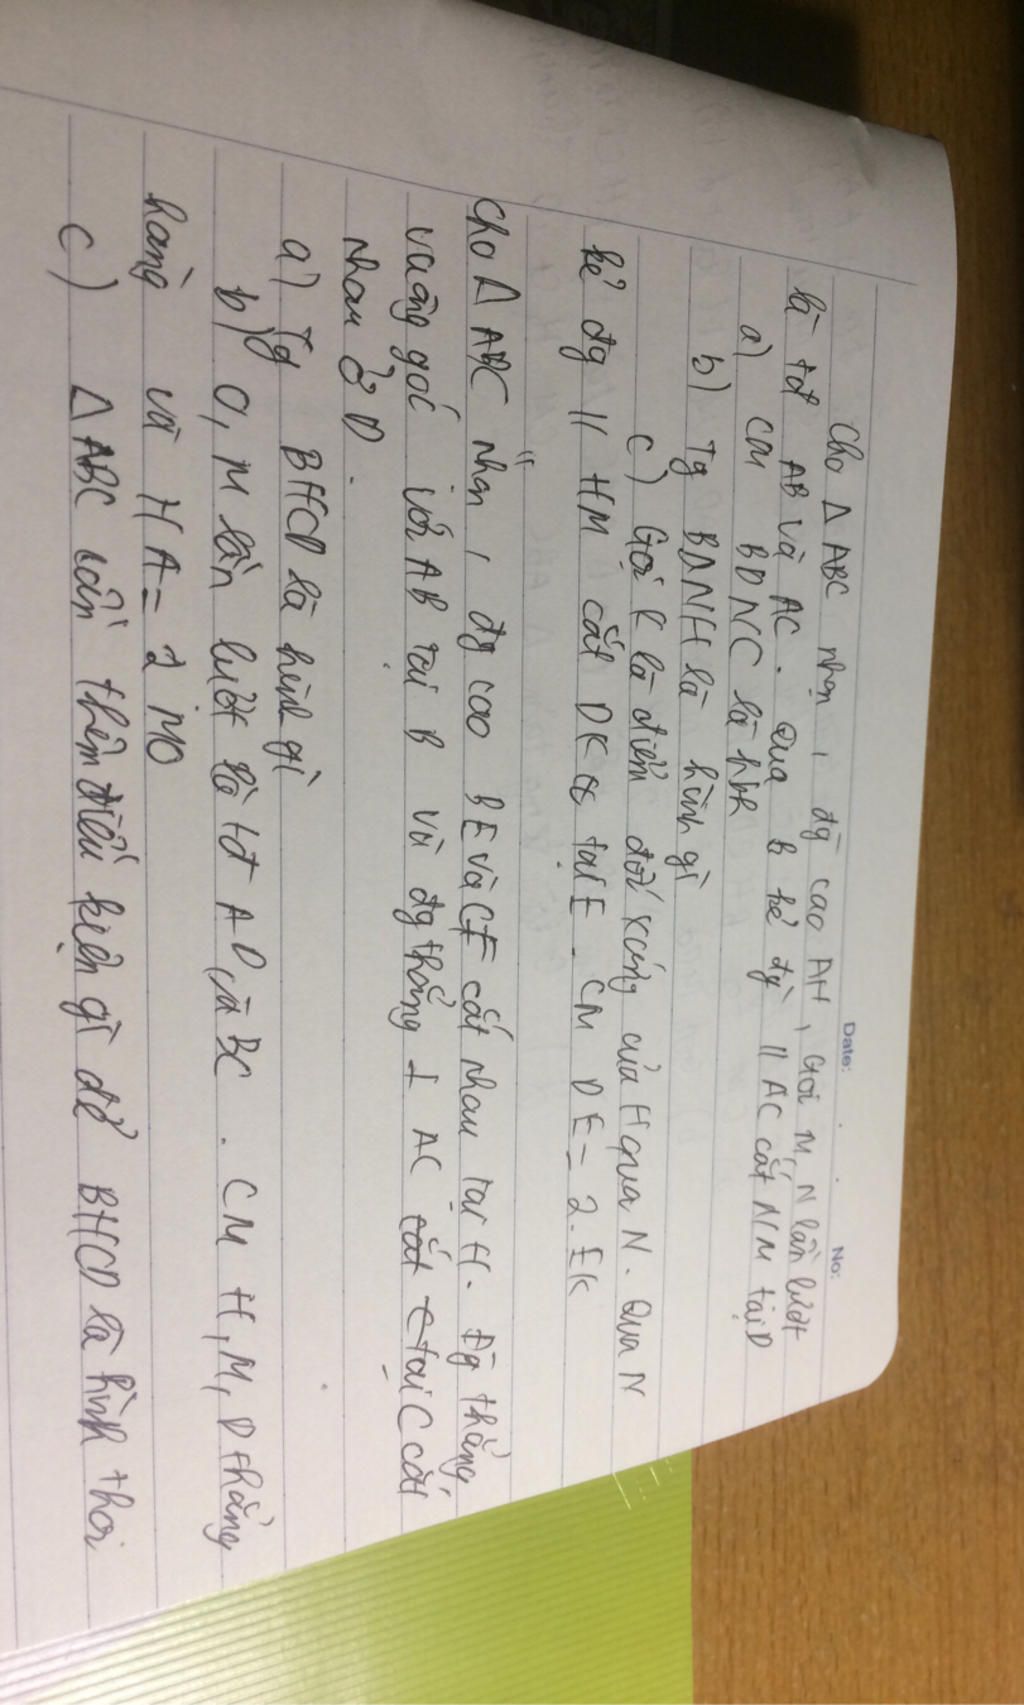 Date: No:
Cho Δ ABC nhọn, đg cao AH, Gọi M, N lần lượt
là tđ AB và AC. Qua B kẻ đg // AC cắt NM tại D
a) CM BDNC là hbh
b) Tg BDNH là hình gì
c) Gọi K là điểm đối xứng của H qua N. Qua N
kẻ đg // HM cắt DK tại E. CM DE = 2.EK
Cho Δ ABC nhọn, đg cao BE và CF cắt nhau tại H. Đg thẳng
vuông góc với AB tại B và đg thẳng ⊥ AC tại C cắt
nhau ở D.
a) Tg BHCD là hình gì
b) O, M lần lượt là tđ AD và BC. CM H, M, D thẳng
hàng và HA = 2 MO
c) Δ ABC cần thêm điều kiện gì để BHCD là hình thoi